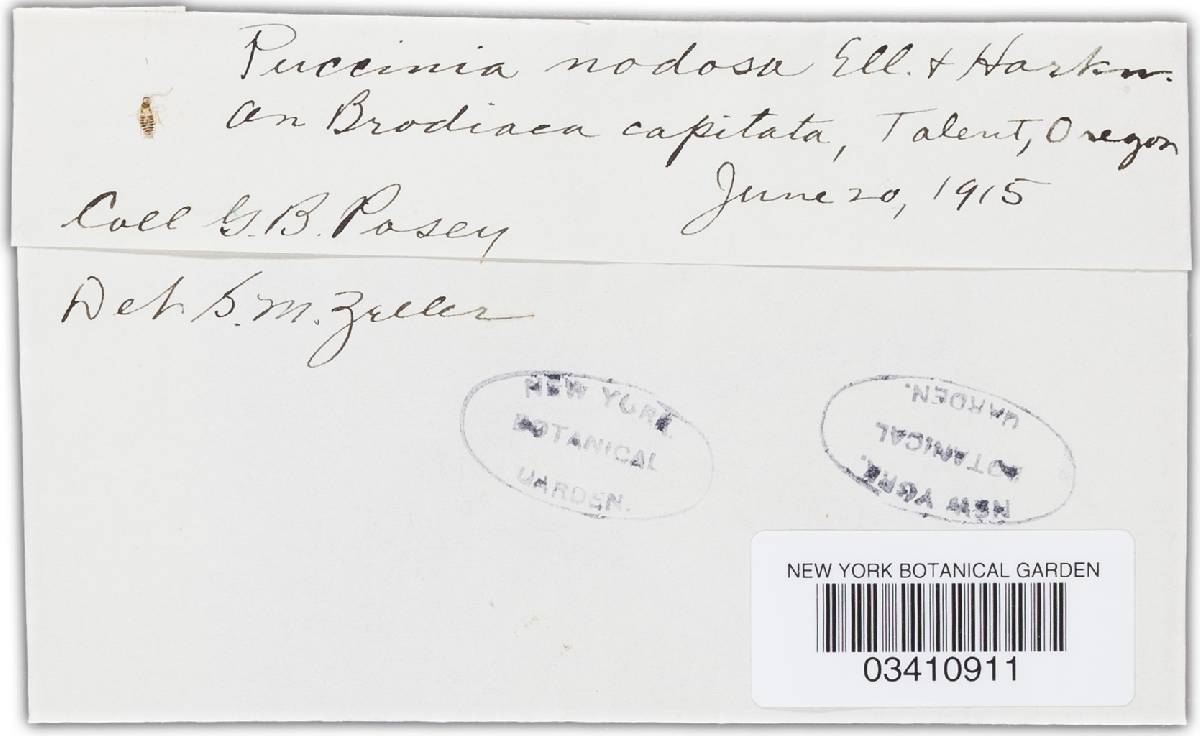 Puccinia nodosa Ell. & Harkn.
on Brodiaea capitata, Talent, Oregon
June 20, 1915
Coll G.B. Posey
Det S.M. Zeller
NEW YORK
BOTANICAL
GARDEN.
NEW YORK
BOTANICAL
GARDEN.
NEW YORK BOTANICAL GARDEN
03410911